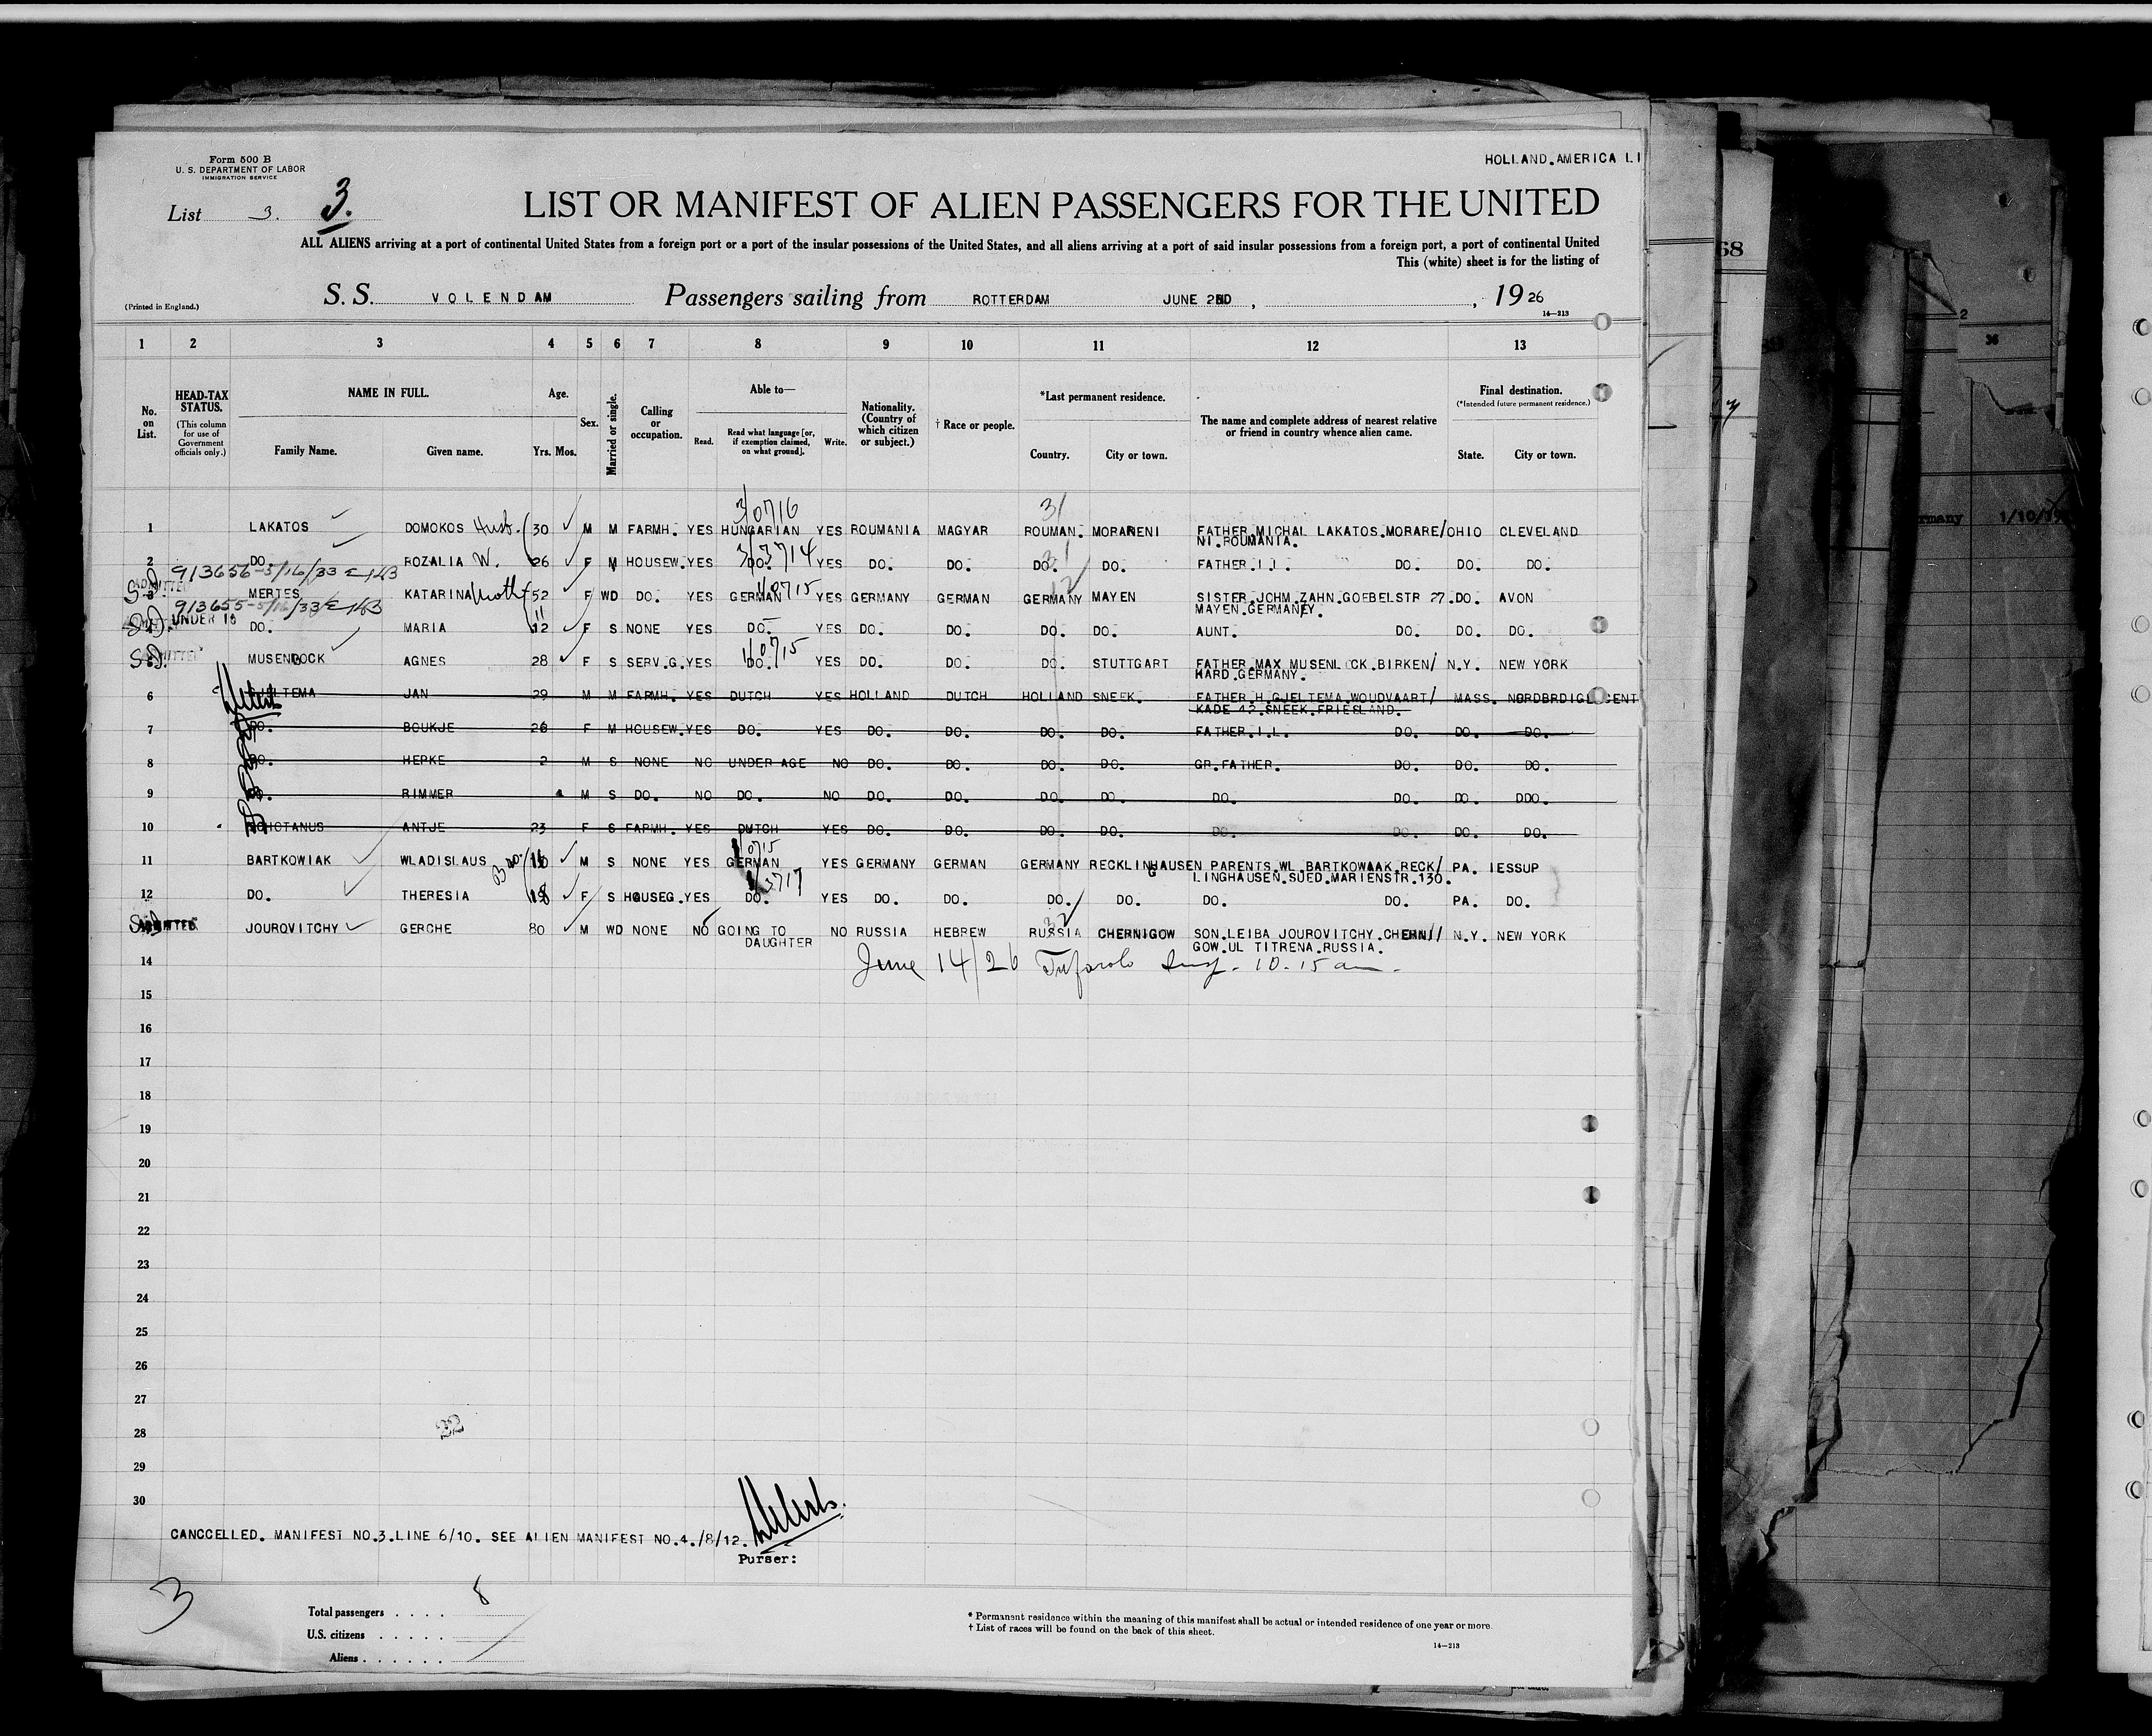 Form 500 B
U. S. DEPARTMENT OF LABOR
IMMIGRATION SERVICE
HOLLAND.AMERICA LI
List 3. 3.
LIST OR MANIFEST OF ALIEN PASSENGERS FOR THE UNITED
ALL ALIENS arriving at a port of continental United States from a foreign port or a port of the insular possessions of the United States, and all aliens arriving at a port of said insular possessions from a foreign port, a port of continental United
This (white) sheet is for the listing of
(Printed in England.)
S. S. VOLENDAM Passengers sailing from ROTTERDAM JUNE 2ND, , 19 26
14—213
1 2 3 4 5 6 7 8 9 10 11 12 13
No. on List.
HEAD-TAX STATUS.
(This column for use of Government officials only.)
NAME IN FULL.
Family Name. Given name.
Age.
Yrs. Mos.
Sex.
Married or single.
Calling or occupation.
Able to—
Read. Read what language [or, if exemption claimed, on what ground]. Write.
Nationality. (Country of which citizen or subject.)
† Race or people.
*Last permanent residence.
Country. City or town.
The name and complete address of nearest relative or friend in country whence alien came.
Final destination.
(*Intended future permanent residence.)
State. City or town.
3/0716 31
1 LAKATOS DOMOKOS Husb. 30 M M FARMH. YES HUNGARIAN YES ROUMANIA MAGYAR ROUMAN. MORARENI FATHER.MICHAL LAKATOS.MORARE/ OHIO CLEVELAND
NI.ROUMANIA.
3/3714 31
2 DO. ROZALIA W. 26 F M HOUSEW. YES DO. YES DO. DO. DO. DO. FATHER.I.L. DO. DO. DO.
913656-5/16/33
ADMITTED 1/0715 12
3 MERTES KATARINA Moth 52 F WD DO. YES GERMAN YES GERMANY GERMAN GERMANY MAYEN SISTER.JOHM ZAHN.GOEBELSTR 27. DO. AVON
MAYEN.GERMANEY.
913655-5/16/33
UNDER 16 11
4 DO. MARIA 12 F S NONE YES DO. YES DO. DO. DO. DO. AUNT. DO. DO. DO.
1/0715
5 MUSENBOCK AGNES 28 F S SERV.G. YES DO. YES DO. DO. DO. STUTTGART FATHER.MAX MUSENL CK.BIRKEN/ N.Y. NEW YORK
HARD.GERMANY.
6 GJELTEMA JAN 29 M M FARMH. YES DUTCH YES HOLLAND DUTCH HOLLAND SNEEK. FATHER.H.GJELTEMA.WOUDVAART/ MASS. NORDBRDIGE CENT
KADE 42.SNEEK.FRIESLAND.
7 DO. BOUKJE 26 F M HOUSEW. YES DO. YES DO. DO. DO. DO. FATHER.I.L. DO. DO. DO.
8 DO. HEPKE 2 M S NONE NO UNDER AGE NO DO. DO. DO. DO. GR.FATHER. DO. DO. DO.
9 DO. RIMMER M S DO. NO DO. NO DO. DO. DO. DO. DO. DO. DO. DDO.
10 SCHOTANUS ANTJE 23 F S FARMH. YES DUTCH YES DO. DO. DO. DO. DO. DO. DO. DO.
1/0715
11 BARTKOWIAK WLADISLAUS 16 M S NONE YES GERMAN YES GERMANY GERMAN GERMANY RECKLINGHAUSEN PARENTS.WL.BARTKOWAAK.RECK/ PA. IESSUP
LINGHAUSEN.SUED.MARIENSTR.130.
1/3717
12 DO. THERESIA 18 F S HOUSEG. YES DO. YES DO. DO. DO. DO. DO. DO. PA. DO.
ADMITTED 32
JOUROVITCHY GERCHE 80 M WD NONE NO GOING TO NO RUSSIA HEBREW RUSSIA CHERNIGOW SON.LEIBA JOUROVITCHY.CHERNI/ N.Y. NEW YORK
DAUGHTER GOW.UL TITRENA.RUSSIA.
14 June 14/26 Insp. 10.15 am.
15
16
17
18
19
20
21
22
23
24
25
26
27
28 22
29
30
CANCCELLED. MANIFEST NO.3.LINE 6/10. SEE ALIEN MANIFEST NO.4./8/12.
Purser:
3
Total passengers . . . . 8
U.S. citizens . . . . .
Aliens . . . . . .
* Permanent residence within the meaning of this manifest shall be actual or intended residence of one year or more.
† List of races will be found on the back of this sheet.
14—213